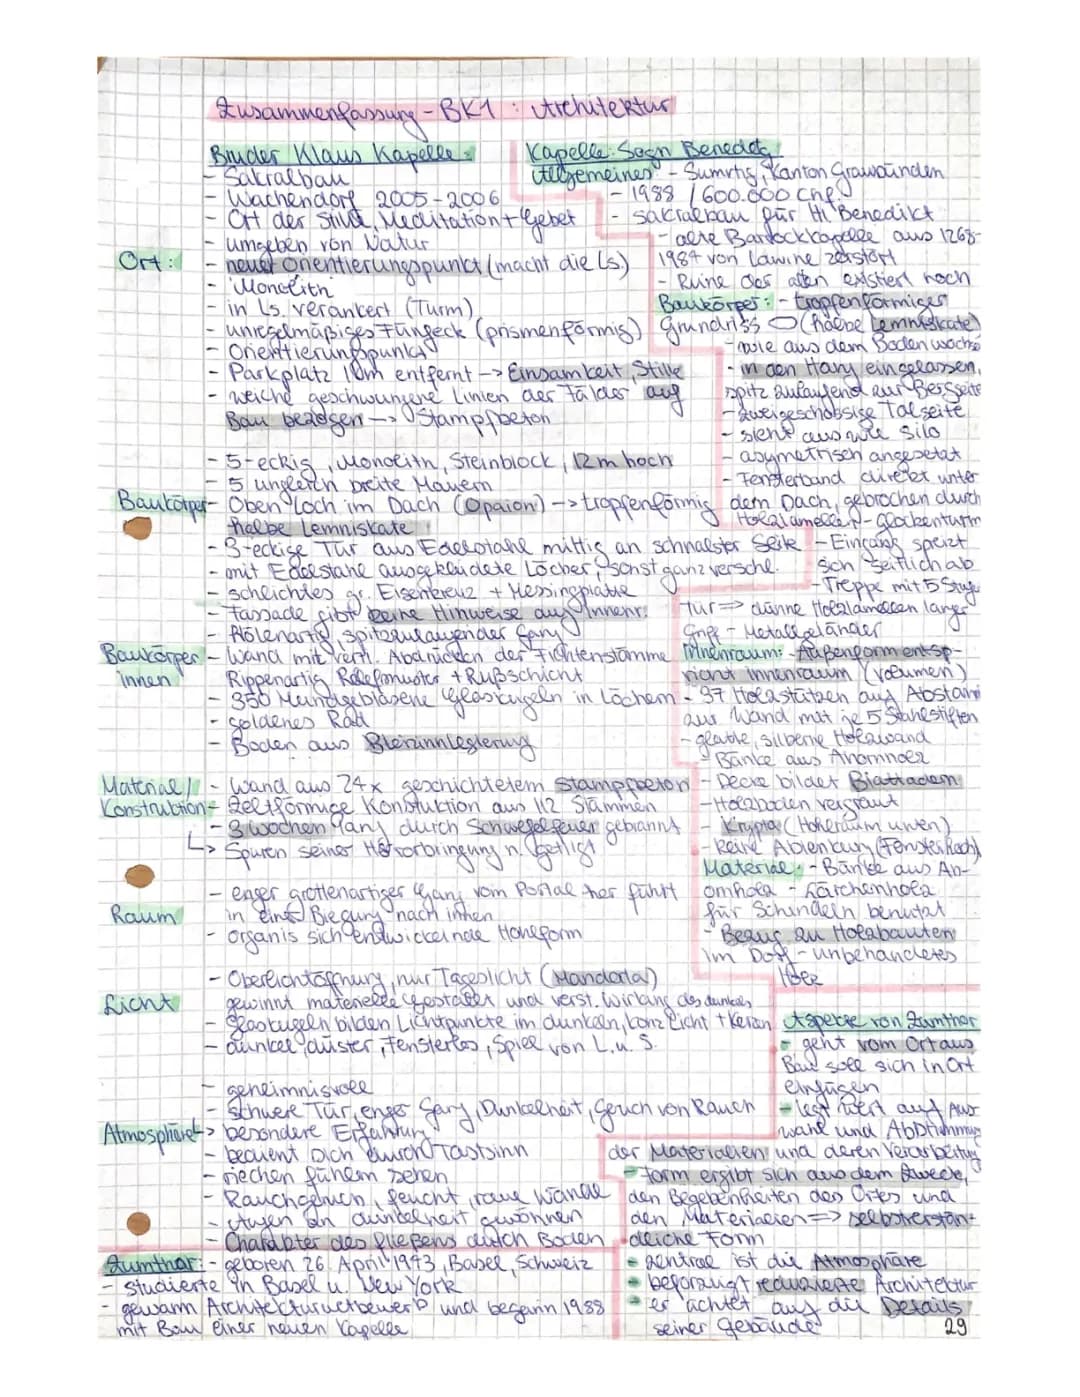 Zusammenfassung - BK1 : Architektur
Bruder Klaus Kapelle:
- Sakralbau
- Wachendorf 2005-2006
- Ort der Stille, Meditation + Gebet
- umgeben von Natur
Ort:
- neuer Orientierungspunkt (macht die Ls)
- Monolith
- in Ls. verankert (Turm)
- unregelmäßiges Fünfeck (prismenförmig)
- Orientierungspunkt
- Parkplatz entfernt -> Einsamkeit, Stille
- weiche geschwungene Linien der Fälder auf
Bau bezogen -> Stampfbeton
- 5-eckig, Monolith, Steinblock, 12m hoch
- 5 ungleich breite Mauern
Baukörper - Oben Loch im Dach (Opaion) -> tropfenförmig
halbe Lemniskate
- 3-eckige Tür aus Edelstahl mittig an schmalster Seite
- mit Edelstahl ausgekleidete Löcher, sonst ganz versch.
- schlichtes gr. Eisenkreuz + Messingplatte
- Fassade gibt keine Hinweise auf Innenr.
- Hölenartig, spitzzulaufender Gang
Baukörper innen
- Wand mit vert. Abdrücken der Fichtenstämme
Rippenartig Reliefmuster + Rußschicht
- 350 Mundgeblasene Glaskugeln in Löchern
- goldenes Rad
- Boden aus Bleizinnlegierung
Material/ Konstruktion
- Wand aus 24x geschichtetem Stampfbeton
- Zeltförmige Konstuktion aus 112 Stämmen
- 3 Wochen lang durch Schwelfeuer gebrannt
-> Spuren seiner Hervorbringung n. getilgt
Raum
- enger grottenartiger Gang vom Portal her führt
in einer Biegung nach innen
- organis sich entwickelnde Hohlform
Licht
- Oberlichtöffnung, nur Tageslicht (Mandorla)
gewinnt materielle Gestalt und verst. Wirkung des dunkels
- Glaskugeln bilden Lichtpunkte im dunkeln, kein Licht + Kerzen
- dunkel, düster, Fensterlos, Spiel von L. u. S.
Atmosphäre
- geheimnisvoll
- schwere Tür, enger Gang, Dunkelheit, Geruch von Rauch
-> besondere Erfahrung
- bedient sich durch Tastsinn
- riechen fühlen sehen
- Rauchgeruch, feucht, raue Wände
- Augen an dunkelheit gewöhnen
- Charakter des fließens durch Boden
Zumthor: - geboren 26. April 1943, Basel, Schweiz
- studierte in Basel u. New York
- gewann Architekturwettbewerb und begann 1988
mit Bau einer neuen Kapelle
Kapelle Sogn Benedetg
Allgemeines: - Sumvitg, Kanton Graubünden
- 1988 / 600.000 CHF
- sakralbau für Hl. Benedikt
- alte Barockkapelle aus 1268-
1984 von Lawine zerstört
- Ruine der alten existiert noch
Baukörper: - tropfenförmiger
Grundriss (halbe Lemniskate)
- wie aus dem Boden wachs
- in den Hang eingelassen,
spitz zulaufend zur Bergseite
- zweigeschossige Talseite
- sieht aus wie Silo
- asymetrisch angesetzt
- Fensterband direkt unter
dem Dach, gebrochen durch
Holzlamellen - Glockenturm
- Eingang spreizt
sich seitlich ab
- Treppe mit 5 Stufe
Tür => dünne Holzlamellen langer
Griff - Metallgeländer
Innenraum: - Außenform entsp-
richt innenraum (volumen)
- 37 Holzstützen auf Abstand
zur Wand mit je 5 Stahlstiften
- glatte, silberne Holzwand
- Bänke aus Ahornholz
- Decke bildet Blattadern
- Holzboden vergraut
- Krypta (Hohlraum unten)
- keine Ablenkung (Fenster hoch)
Material: - Bänke aus Ah-
ornholz - Lärchenholz
für Schindeln benutzt
- Bezug zu Holzbauten
im Dorf - unbehandeltes
Holz
Aspekte von Zumthor
- geht vom Ort aus
Bau soll sich in Ort
einfügen
- legt Wert auf Aus-
wahl und Abstimmung
der Materialien und deren Verarbeitung
- Form ergibt sich aus dem Zweck,
den Begebenheiten des Ortes und
den Materialien => selbstverstän-
dliche Form
- zentral ist die Atmosphäre
- beforzugt reduzierte Architektur
- er achtet auf die Details
seiner Gebäude
29